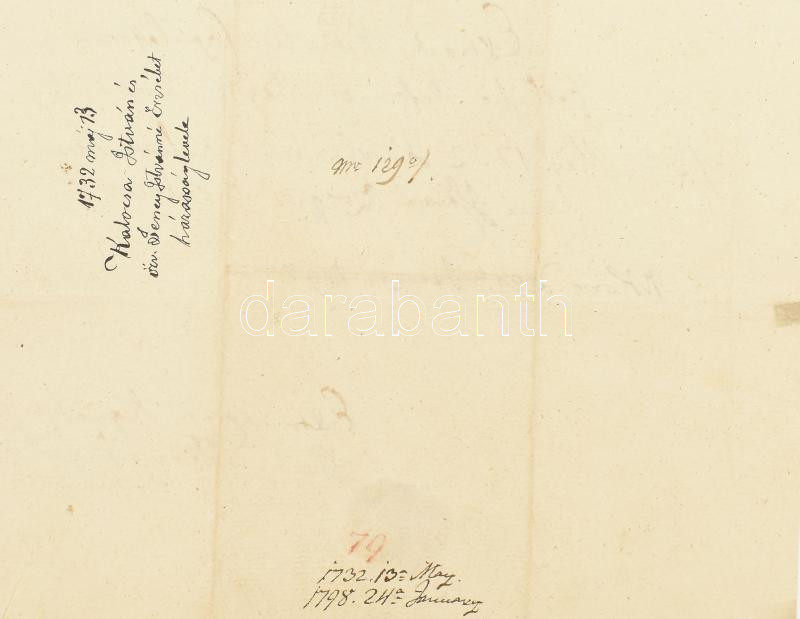 1732 máj 13
Kalocsa István és
özv. Deney Istvánné Erzsébet
házasságlevele
Nro 129
darabanth
79
1732. 13a May.
1798. 24a January